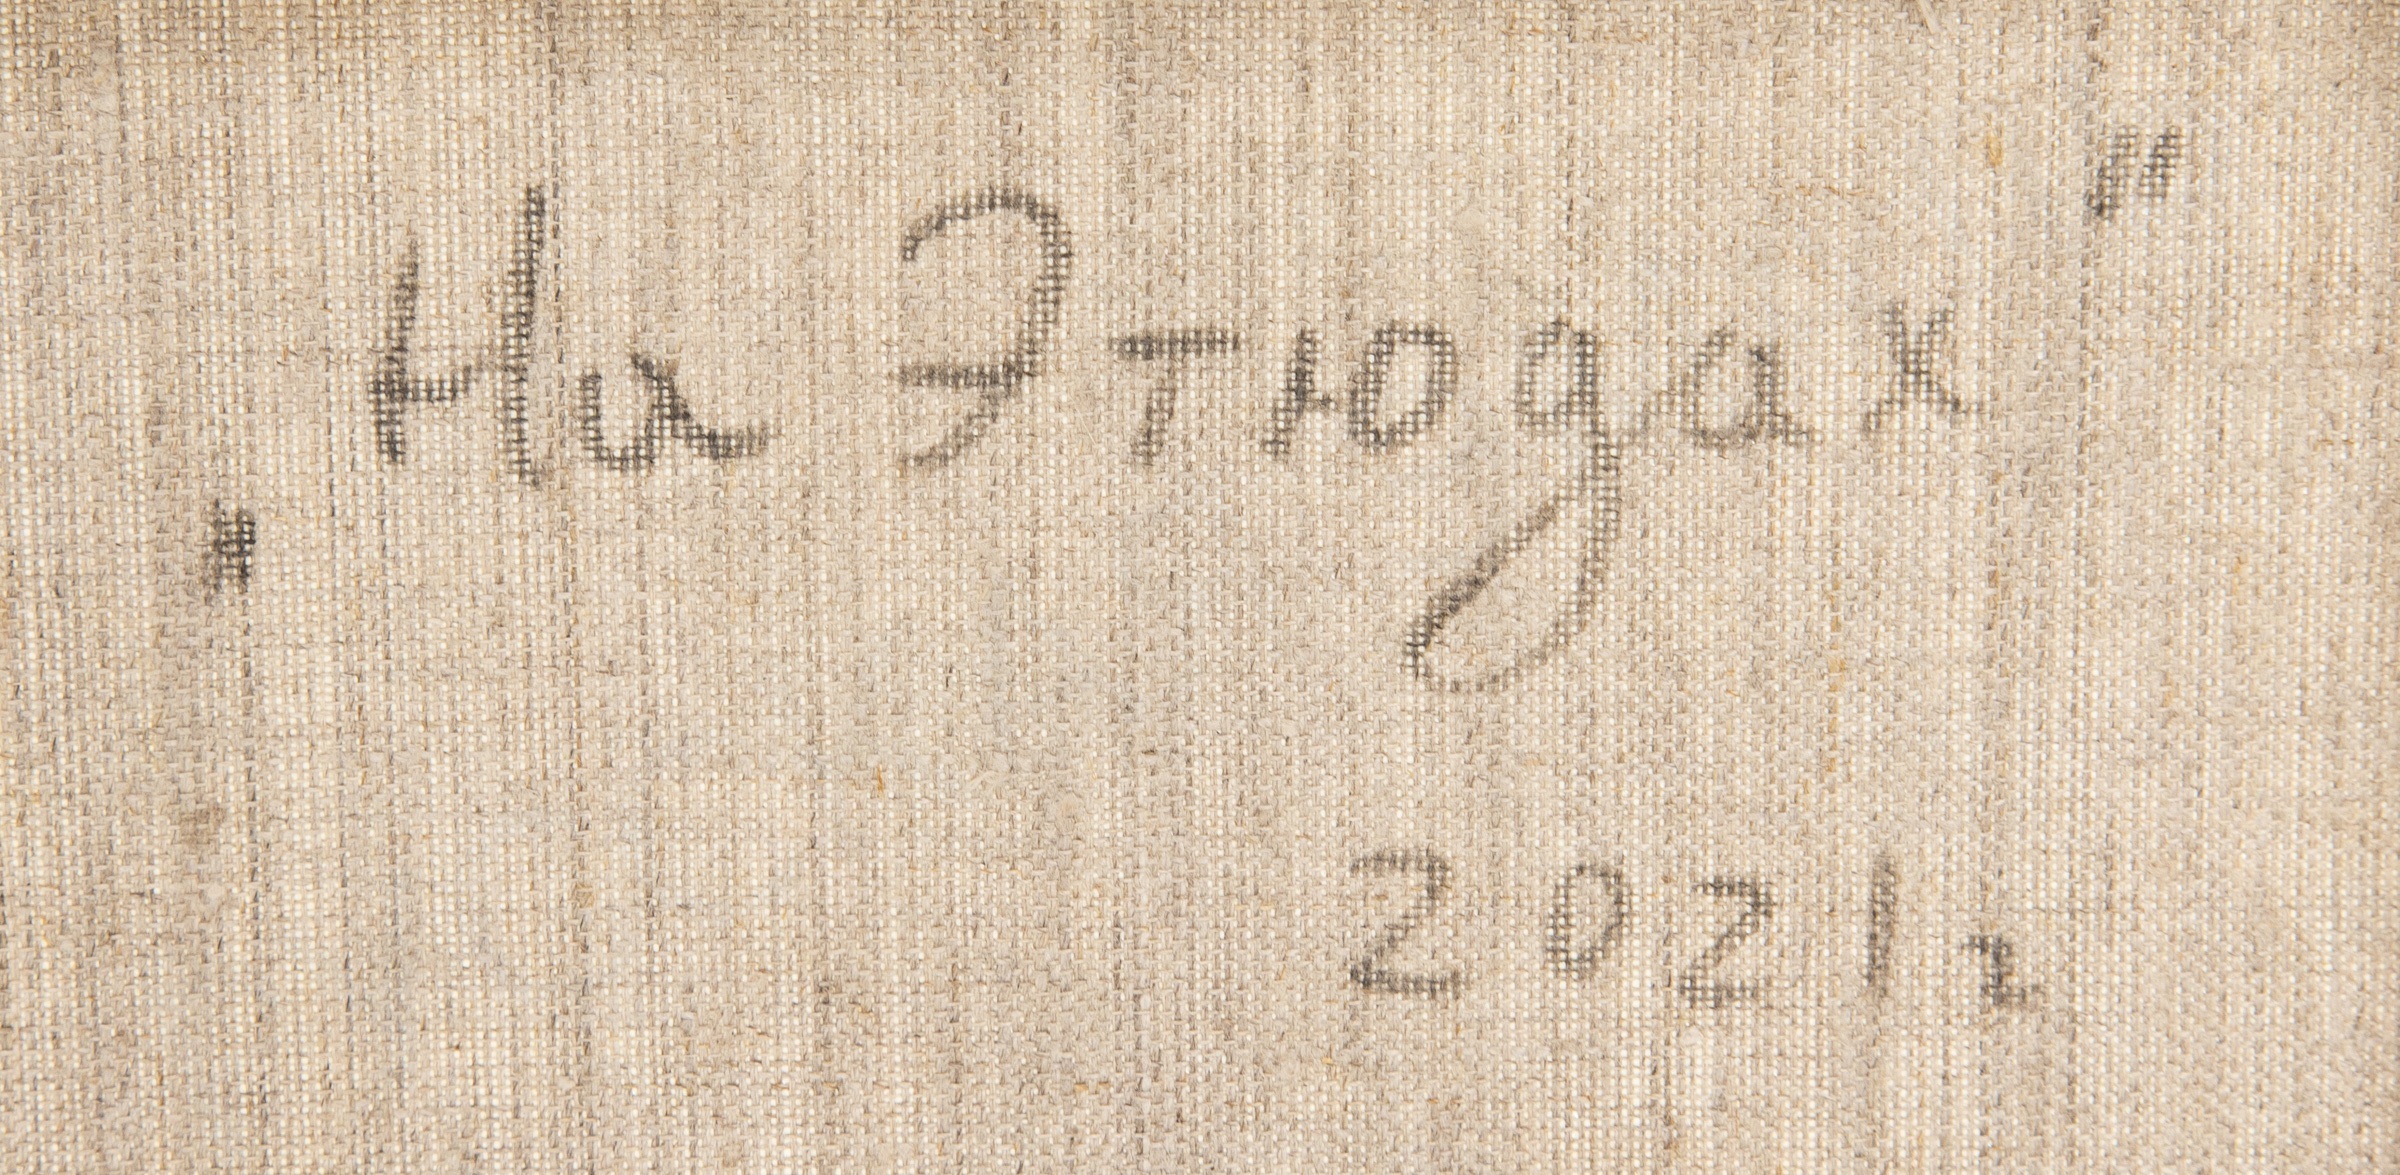 „На Этюдах"
2021г